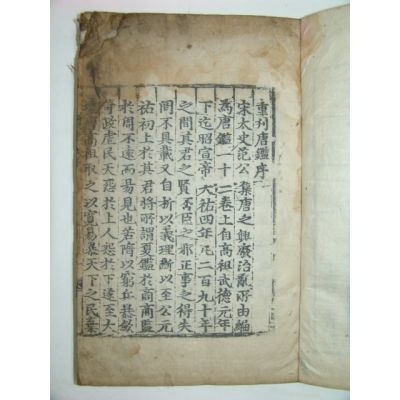 重刊唐鑑序
宋太史范公集唐之興廢治亂所由編
為唐鑑一十二卷上自高祖武德元年
下迄昭宣帝天祐四年凡二百九十年
之間其君之賢否臣之邪正事之得失
罔不具載又自折以義理斷以至公元
祐初上於其君將所謂夏鑑於商商鑑
於周不遠而易見也若隋以窮兵暴斂
苛政虐民天怒於上人怨於下遂至大
唐高祖取之以寬易暴天下之民棄